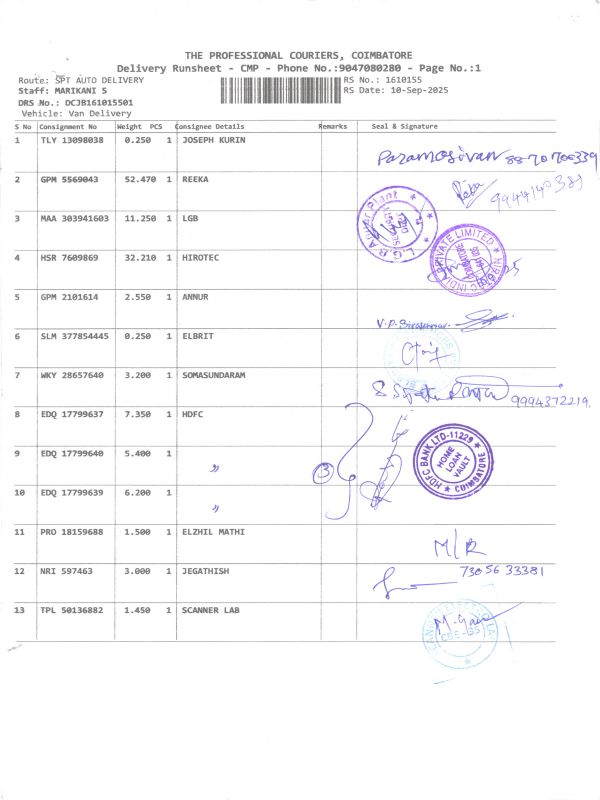 THE PROFESSIONAL COURIERS, COIMBATORE
Delivery Runsheet - CMP - Phone No.:9047080280 - Page No.:1
Route: SPT AUTO DELIVERY
RS No.: 1610155
Staff: MARIKANI S
RS Date: 10-Sep-2025
DRS No.: DCJB161015501
Vehicle: Van Delivery
S No Consignment No Weight PCS Consignee Details Remarks Seal & Signature
1 TLY 13098038 0.250 1 JOSEPH KURIN
Paramasivan 8870706339
2 GPM 5569043 52.470 1 REEKA
9944140389
3 MAA 303941603 11.250 1 LGB
4 HSR 7609869 32.210 1 HIROTEC
HIROTEC INDIA PRIVATE LIMITED
5 GPM 2101614 2.550 1 ANNUR
6 SLM 377854445 0.250 1 ELBRIT
7 WKY 28657640 3.200 1 SOMASUNDARAM
9994372219.
8 EDQ 17799637 7.350 1 HDFC
HDFC BANK LTD-11229
HOME
LOAN
VAULT
COIMBATORE
9 EDQ 17799640 5.400 1 〃
3
10 EDQ 17799639 6.200 1 〃
11 PRO 18159688 1.500 1 ELZHIL MATHI
M/R
12 NRI 597463 3.000 1 JEGATHISH
73056 33381
13 TPL 50136882 1.450 1 SCANNER LAB
CBE-35